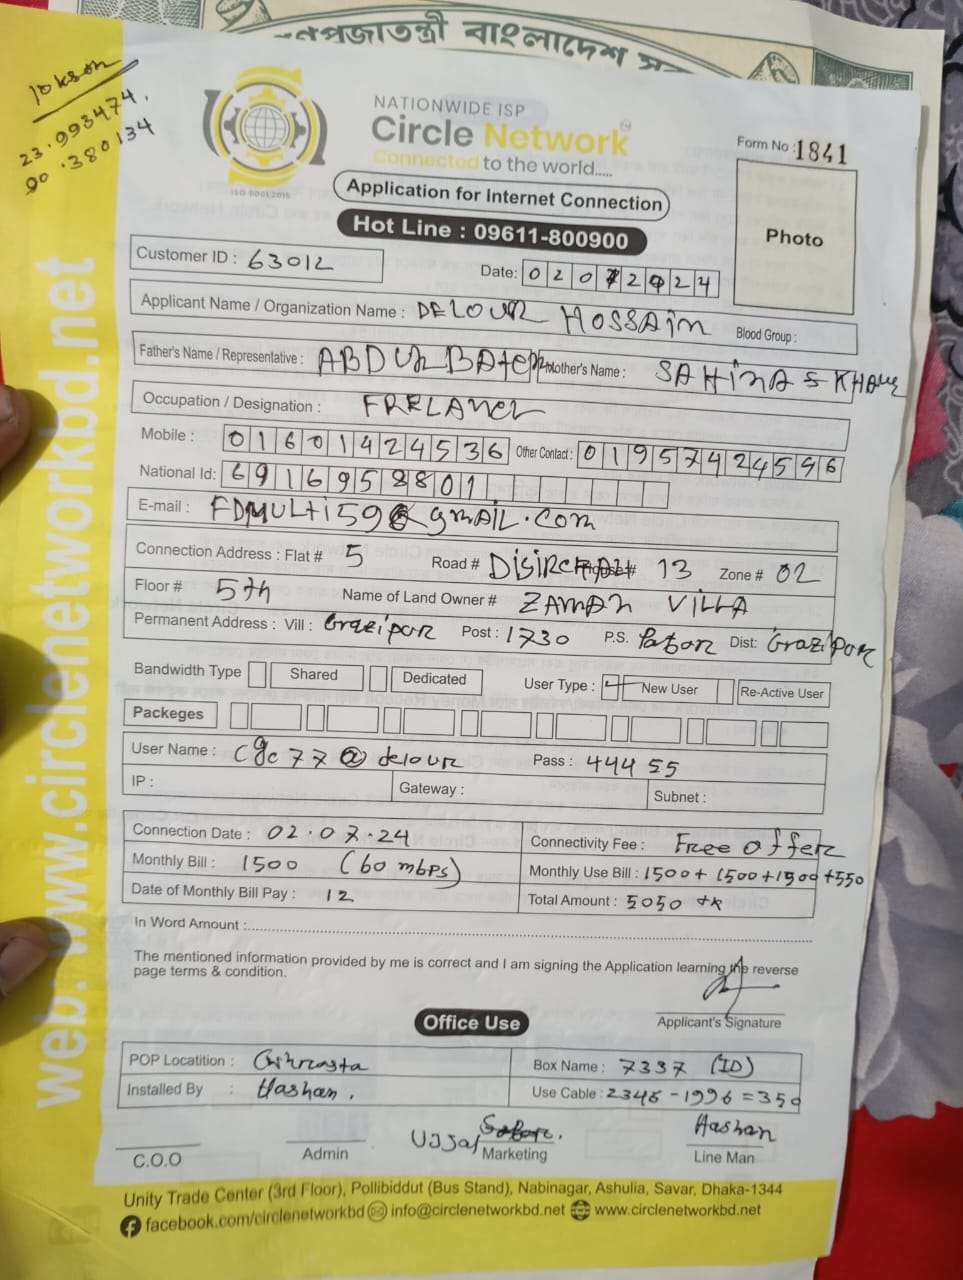 গণপ্রজাতন্ত্রী বাংলাদেশ
10kson
23.993474,
90.380134
NATIONWIDE ISP
Circle Network
Connected to the world.....
ISO 9001:2015
Form No : 1841
Application for Internet Connection
Hot Line : 09611-800900
Photo
Customer ID : 63012
Date: 02072024
Applicant Name / Organization Name : DELOUR HOSSAIN Blood Group :
Father's Name / Representative : ABDUR Mother's Name : SAHINA
Occupation / Designation : FRELANCER
Mobile : 01601424536 Other Contact : 01957424546
National Id: 6916958801
E-mail : FDMULTi59@gmAiL.com
Connection Address : Flat # 5 Road # 13 Zone # 02
Floor # 5th Name of Land Owner # ZAMAN VILLA
Permanent Address : Vill : Grazipor Post : 1730 P.S. Dist: Grazipor
Bandwidth Type Shared Dedicated User Type : New User Re-Active User
Packeges
User Name : cgc77@delour Pass : 444 55
IP : Gateway : Subnet :
Connection Date : 02.07.24 Connectivity Fee : Free offer
Monthly Bill : 1500 (60 mbps) Monthly Use Bill : 1500 + 1500 + 1500 + 550
Date of Monthly Bill Pay : 12 Total Amount : 5050 tk
In Word Amount :
The mentioned information provided by me is correct and I am signing the Application learning the reverse
page terms & condition.
Applicant's Signature
Office Use
POP Locatition : Box Name : 7337 (ID)
Installed By : Hashan. Use Cable : 2346 - 1996 = 350
C.O.O
Admin
Ujjal
Marketing
Hashan
Line Man
Unity Trade Center (3rd Floor), Pollibiddut (Bus Stand), Nabinagar, Ashulia, Savar, Dhaka-1344
facebook.com/circlenetworkbd info@circlenetworkbd.net www.circlenetworkbd.net
web: www.circlenetworkbd.net